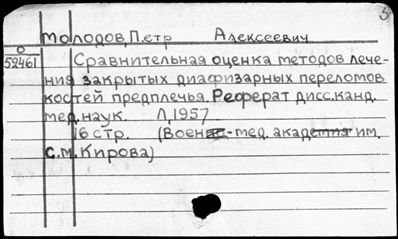 5
Молодов, Петр Алексеевич
О
52461
Сравнительная оценка методов лече-
ния закрытых диафизарных переломов
костей предплечья. Реферат дисс. канд.
мед. наук. Л, 1957
16 стр. (Военно-мед. академия им.
С.М. Кирова)